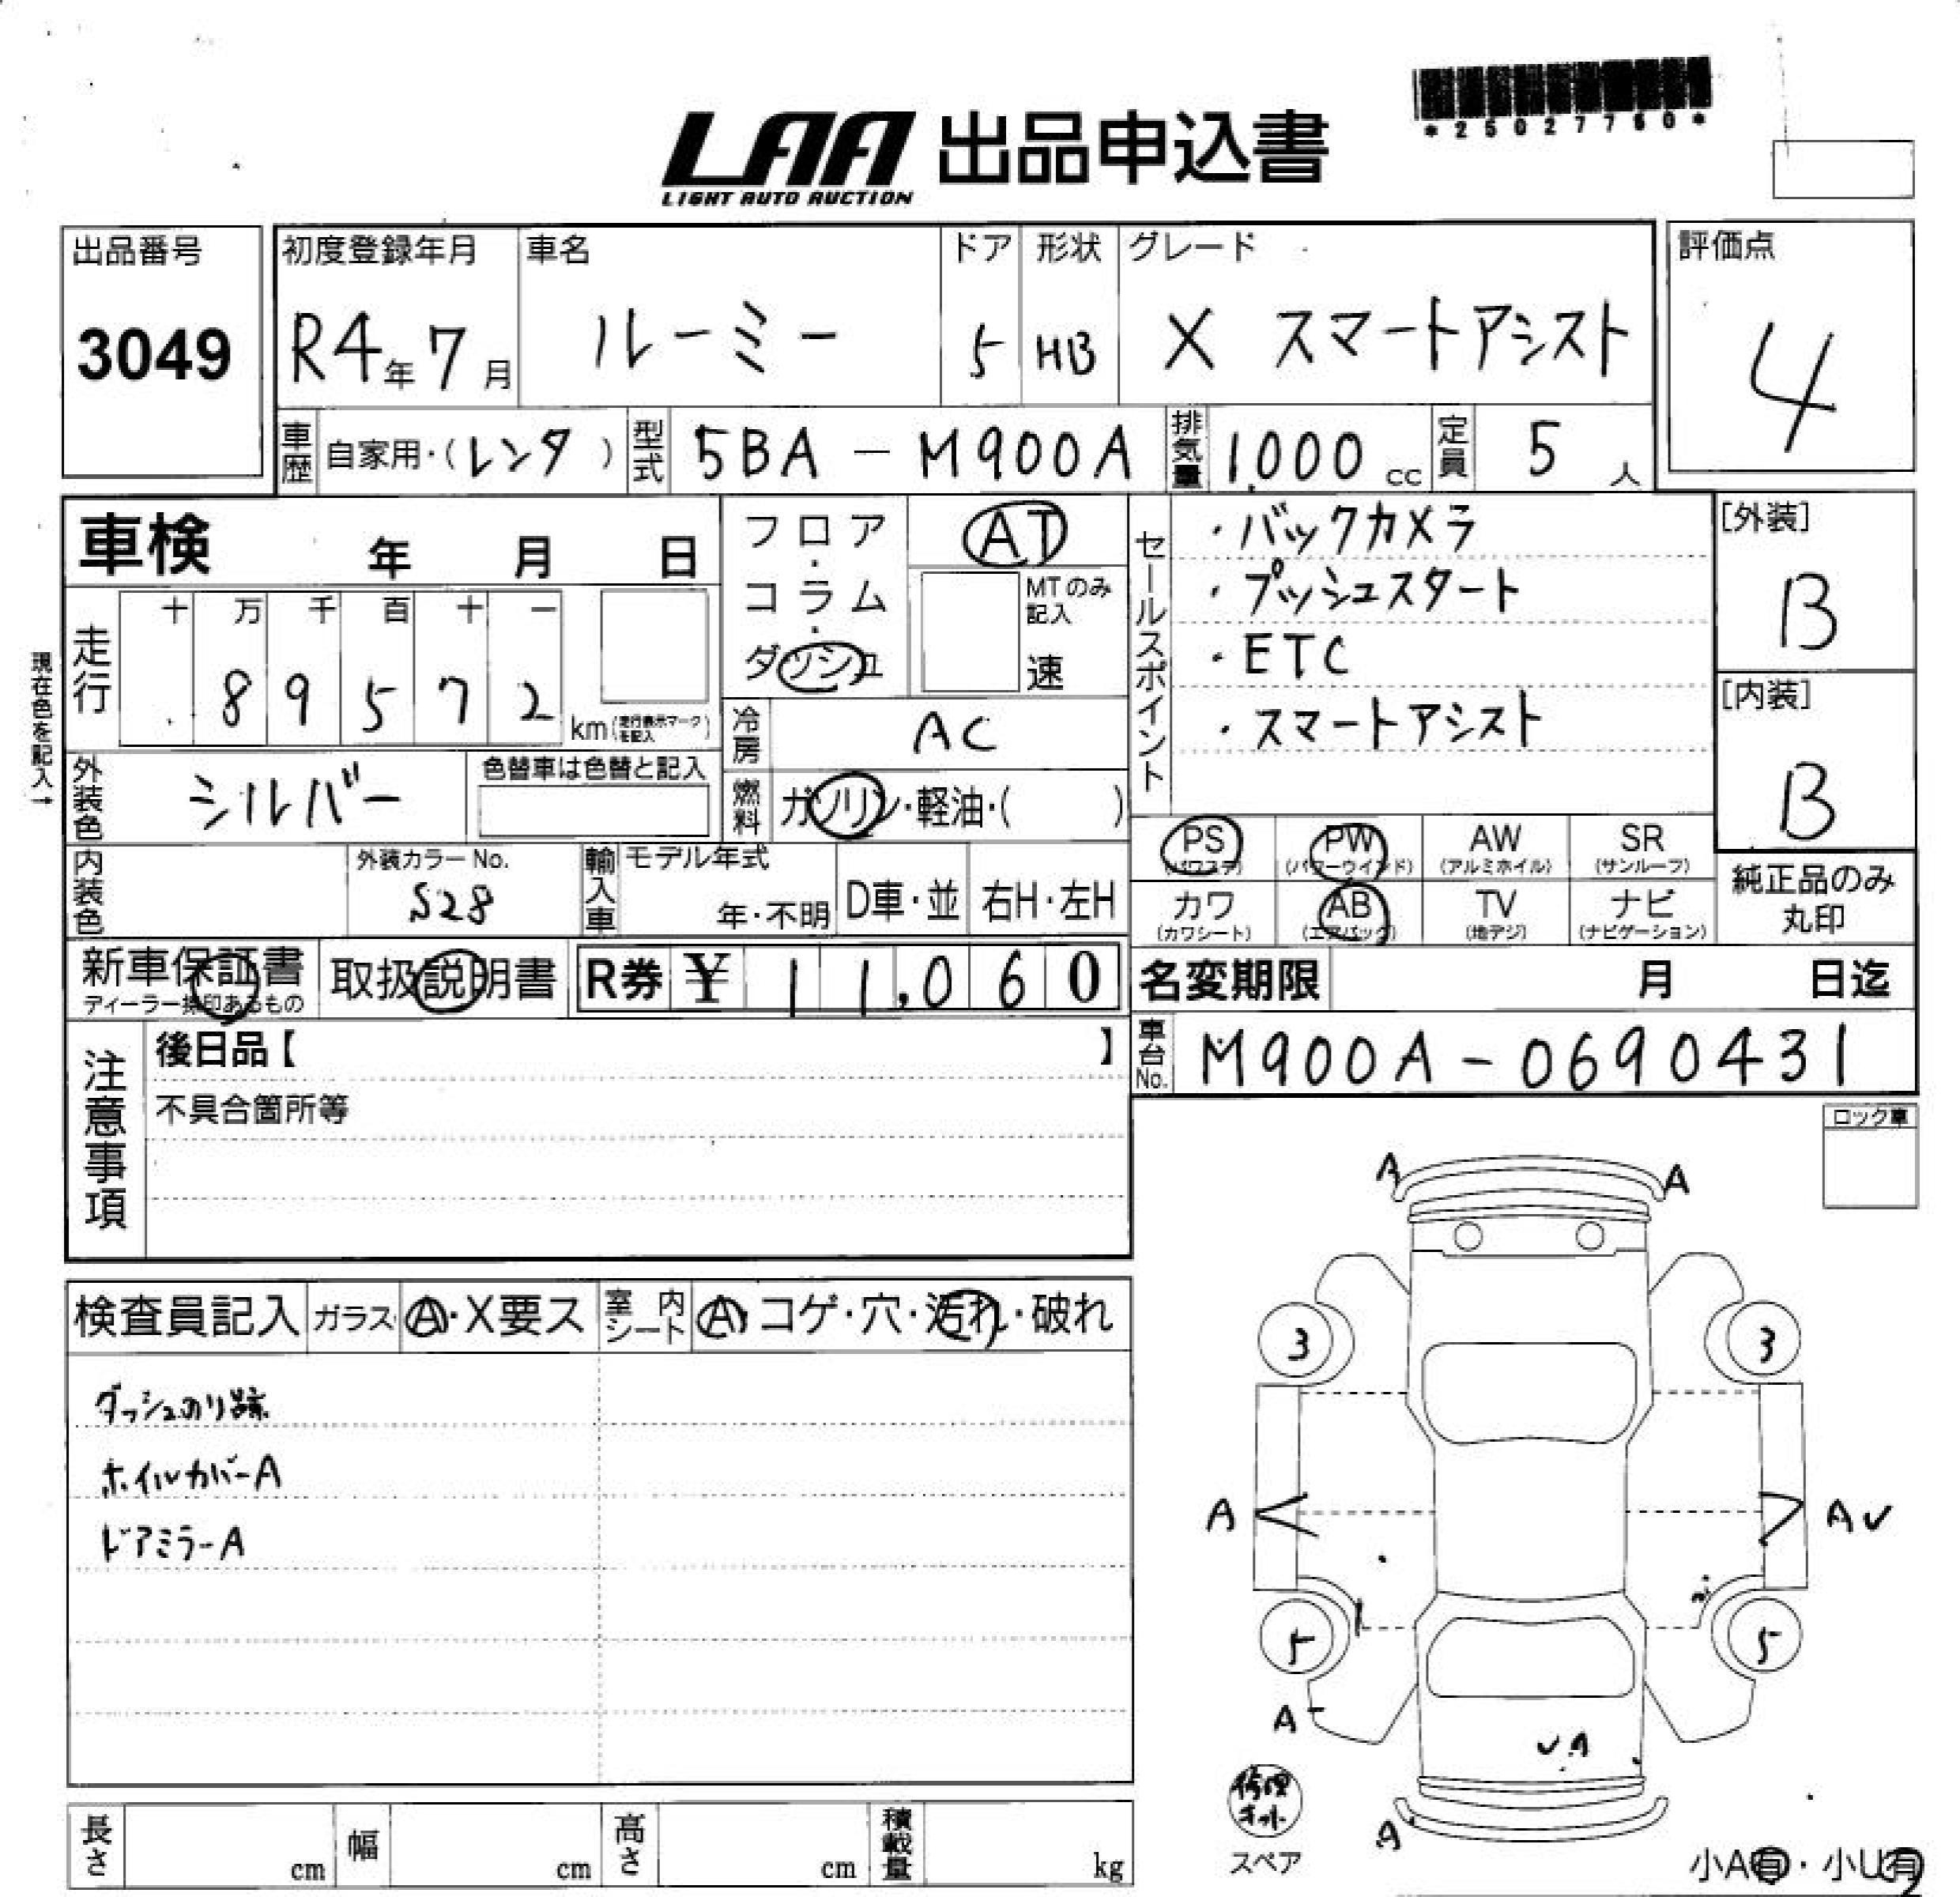 *25027760*
LAA 出品申込書
LIGHT AUTO AUCTION
出品番号
3049
初度登録年月
R4年7月
車名
ルーミー
ドア
5
形状
HB
グレード
X スマートアシスト
評価点
4
車歴
自家用・(レンタ)
型式
5BA-M900A
排気量
1,000cc
定員
5人
車検 年 月 日
フロア・コラム・ダッシュ
AT
MTのみ記入
速
セールスポイント
・バックカメラ
・プッシュスタート
・ETC
・スマートアシスト
[外装]
B
[内装]
B
現在色を記入→
走行
十 万 千 百 十 一
8 9 5 7 2
km(走行表示マークを記入)
冷房
AC
外装色
シルバー
色替車は色替と記入
燃料
ガソリン・軽油・( )
PS
(パワステ)
PW
(パワーウインド)
AW
(アルミホイル)
SR
(サンルーフ)
カワ
(カワシート)
AB
(エアバッグ)
TV
(地デジ)
ナビ
(ナビゲーション)
純正品のみ
丸印
内装色
外装カラーNo.
S28
輸入車
モデル年式
年・不明
D車・並
右H・左H
新車保証書
ディーラー捺印あるもの
取扱説明書
R券 ¥ 11,060
名変期限 月 日迄
車台No.
M900A-0690431
注意事項
後日品【 】
不具合箇所等
ロック車
検査員記入
ガラス
A・X要ス
室内シート
A・コゲ・穴・汚れ・破れ
ダッシュのり跡
ホイルカバーA
ドアミラーA
A A
3 3
A A✓
5 5
A
✓A
A
修理キット
スペア
小A有・小U有
長さ cm
幅 cm
高さ cm
積載量 kg